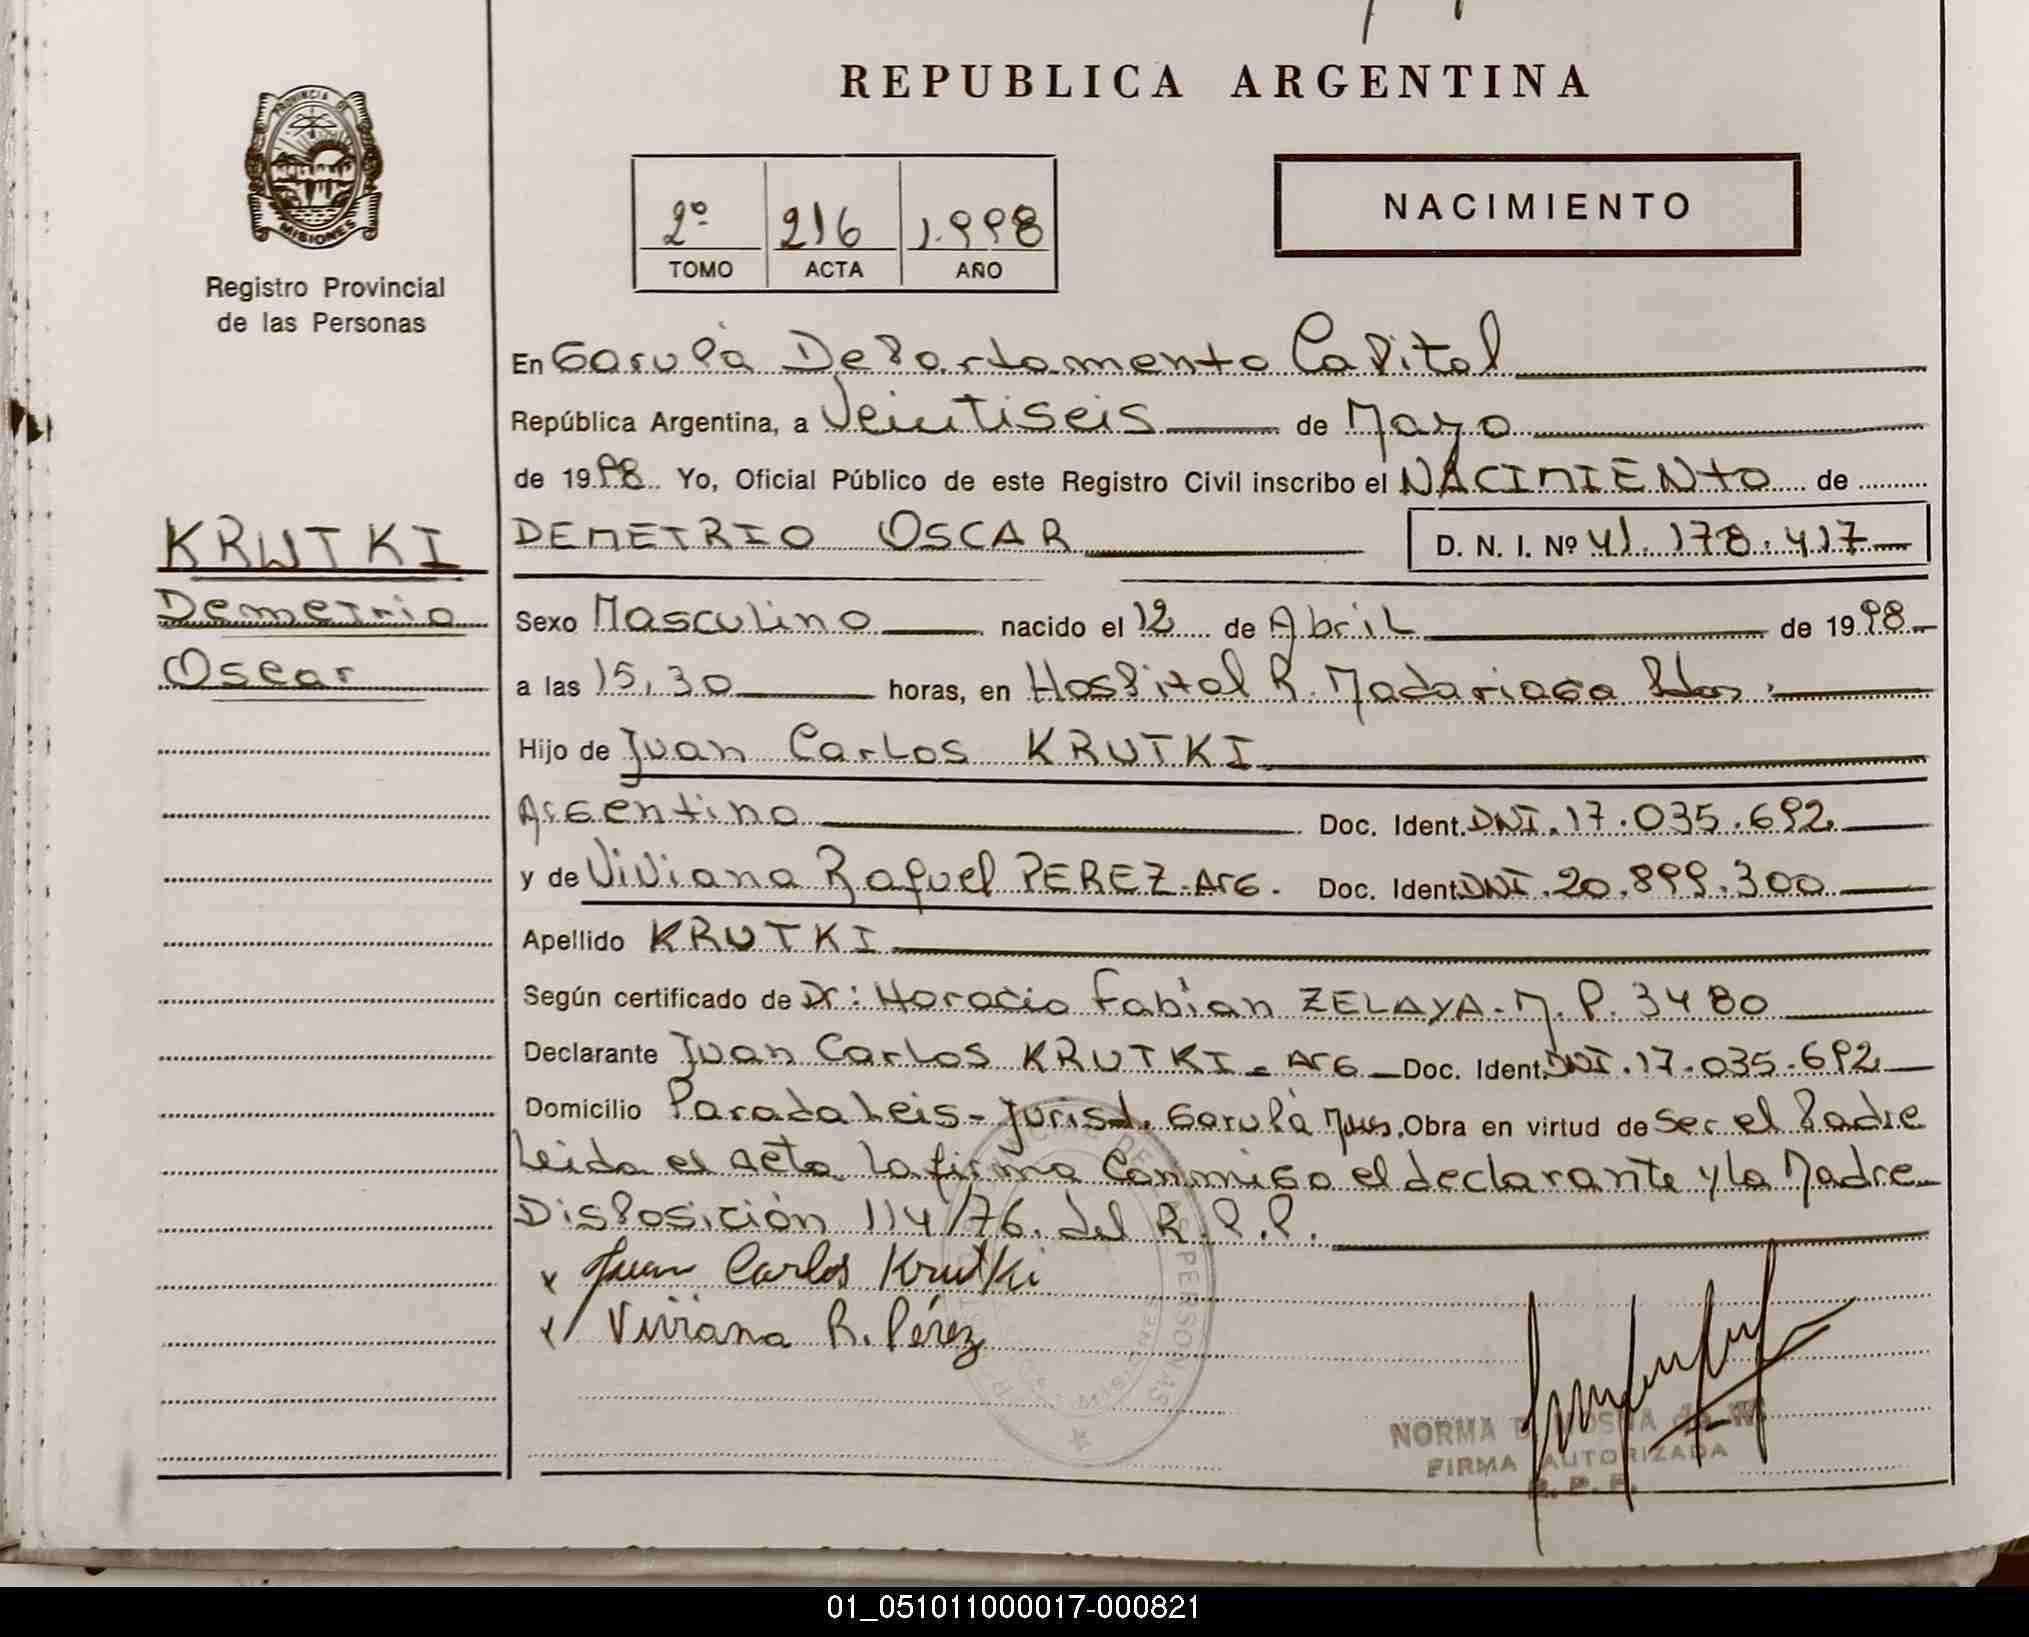 REPUBLICA ARGENTINA
PROVINCIA DE
MISIONES
Registro Provincial
de las Personas
2º 216 1.998
TOMO ACTA AÑO
NACIMIENTO
En Garupá Departamento Capital
República Argentina, a Veintiseis de Mayo
de 1998 Yo, Oficial Público de este Registro Civil inscribo el NACIMIENTO de
KRUTKI
Demetrio
Oscar
DEMETRIO OSCAR D. N. I. Nº 41.178.417
Sexo Masculino nacido el 12 de Abril de 1998
a las 15,30 horas, en Hospital R. Madariaga Pdas.
Hijo de Juan Carlos KRUTKI
Argentino Doc. Ident. DNI. 17.035.692
y de Viviana Raquel PEREZ. Arg. Doc. Ident. DNI. 20.899.300
Apellido KRUTKI
Según certificado de Dr: Horacio Fabian ZELAYA. M. P. 3480
Declarante Juan Carlos KRUTKI - Arg Doc. Ident. DNI. 17.035.692
Domicilio Parada Leis - Jurisd. Garupá Mnes. Obra en virtud de ser el Padre
Leida el acta la firma conmigo el declarante y la Madre
Disposición 114/76. del R.P.P.
x Juan Carlos Krutki
x Viviana R. Pérez
PERSONAS
MISIONES
NORMA
FIRMA AUTORIZADA
R. P. P.
01_051011000017-000821